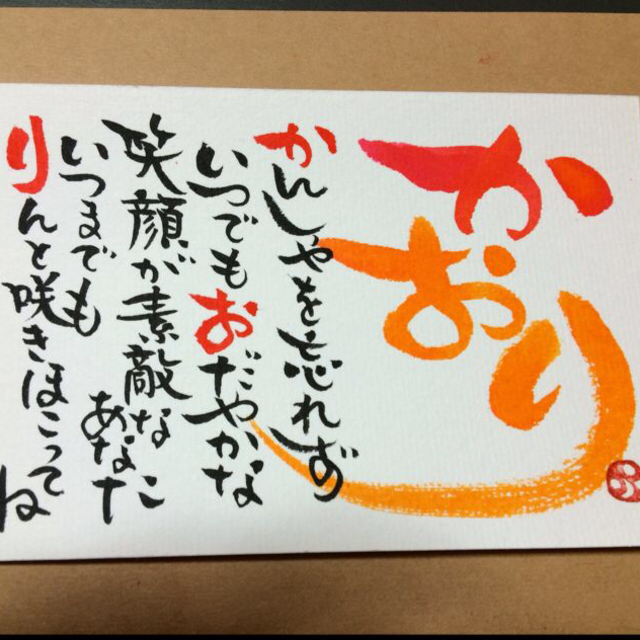 かおり
かんしゃを忘れず
いつでもおだやかな
笑顔が素敵な
あなた
いつまでも
りんと咲きほこって
ね